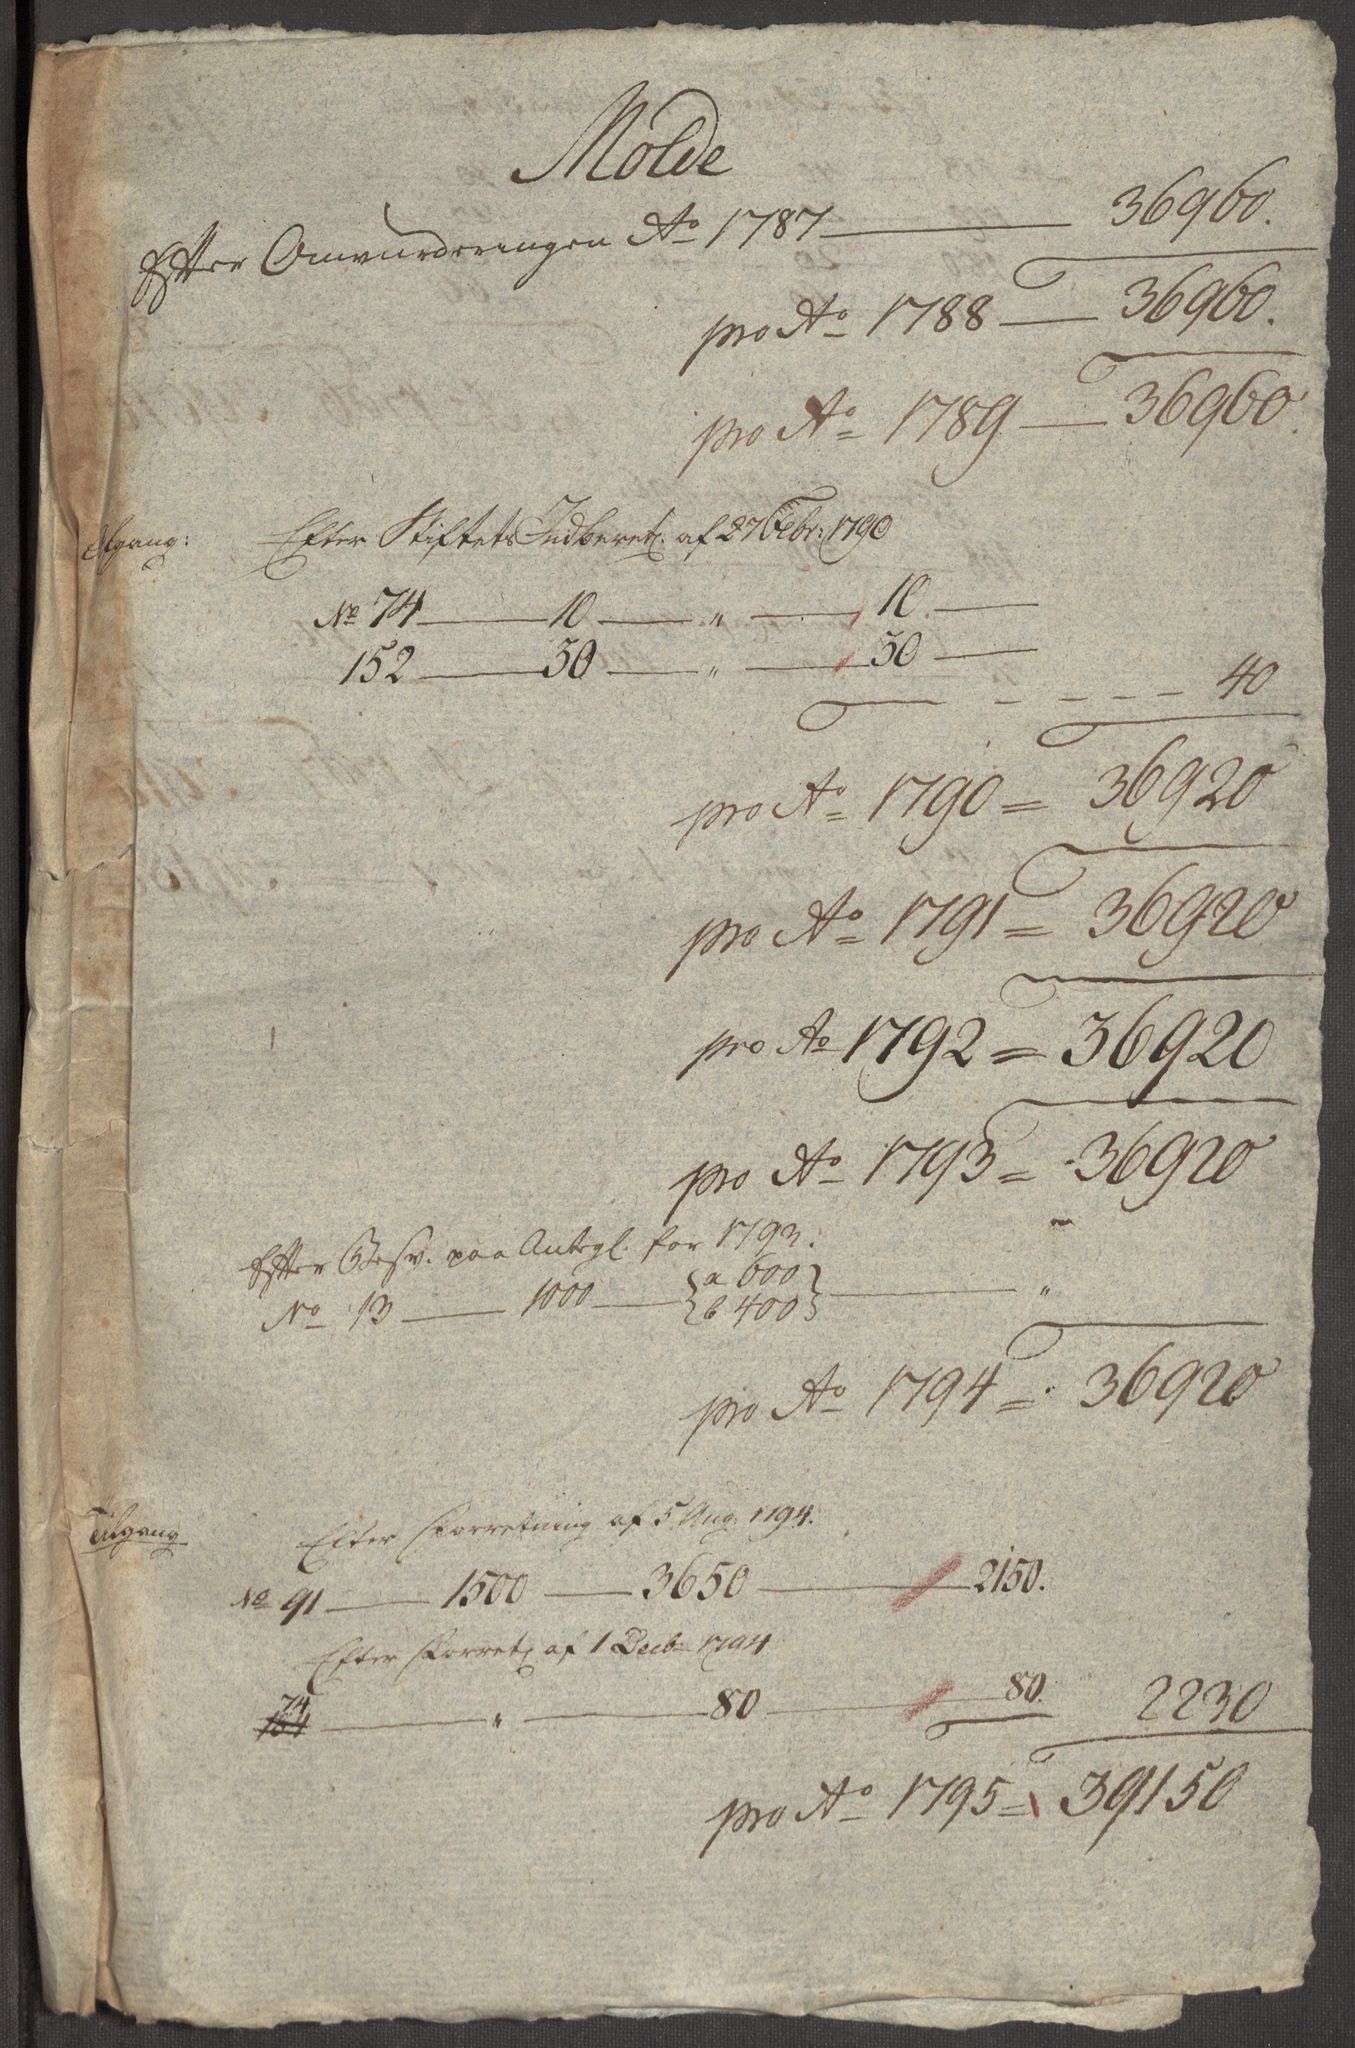 Molde
Efter Omvurderingen Ao 1787 — 36960.
pro Ao 1788 — 36960.
pro Ao 1789 — 36960.
Afgang: Efter Stiftets Indberet. af 27 Febr: 1790
No 74 — 10 — " — 10 —
152 — 30 — " — 30 —
— — — — 40
pro Ao 1790 = 36920
pro Ao 1791 = 36920
pro Ao 1792 = 36920
pro Ao 1793 = 36920
Efter Besv. paa Antegl. for 1793. "
No 13 — 1000 — { a 600 } — "
{ b 400 }
pro Ao 1794 = 36920
Tilgang Efter Forretning af 5 Aug. 1794.
No 91 — 1500 — 3650 — 2150.
Efter Forret. af 1 Decb. 1794
74 — " — 80 — 80. 2230
pro Ao 1795 = 39150